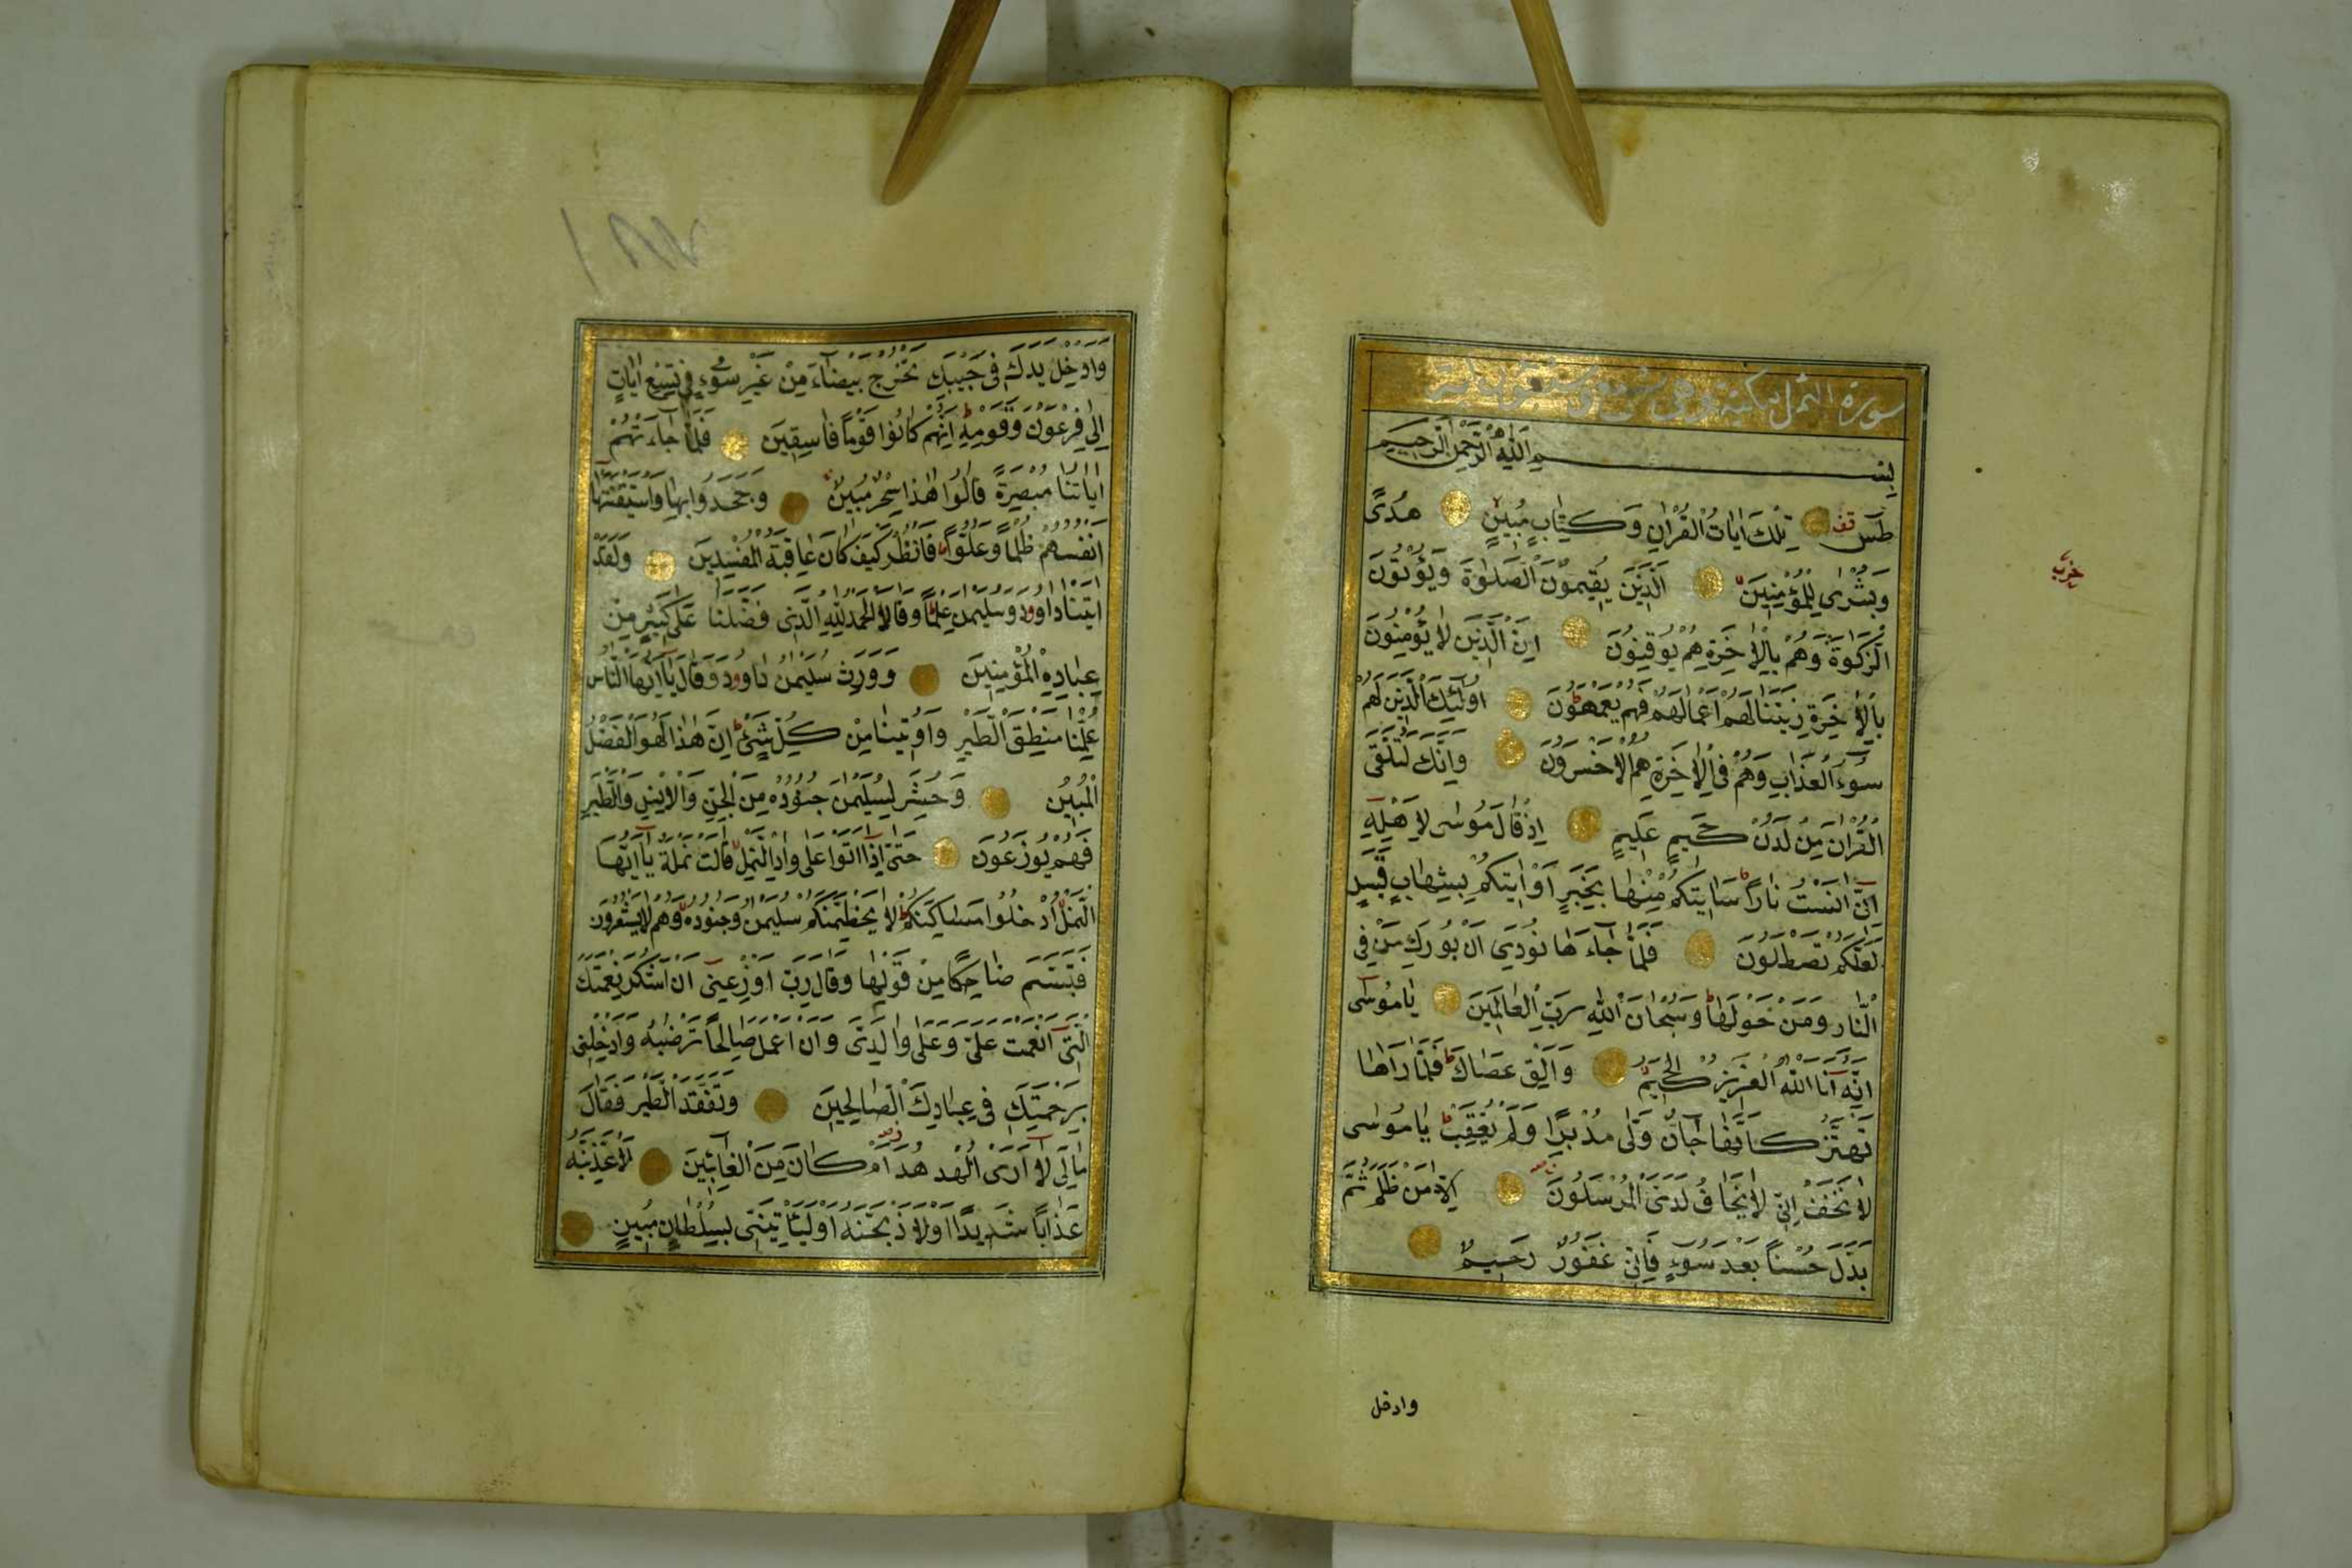 سورة النمل مكية وهي
بِسْمِ اللّٰهِ الرَّحْمٰنِ الرَّحِيمِ
طٰسٓ قف تِلْكَ اٰيَاتُ الْقُرْاٰنِ وَكِتَابٍ مُبِينٍ هُدًى
وَبُشْرٰى لِلْمُؤْمِنِينَ اَلَّذِينَ يُقِيمُونَ الصَّلٰوةَ وَيُؤْتُونَ
حزب
الزَّكٰوةَ وَهُمْ بِالْاٰخِرَةِ هُمْ يُوقِنُونَ اِنَّ الَّذِينَ لَا يُؤْمِنُونَ
بِالْاٰخِرَةِ زَيَّنَّا لَهُمْ اَعْمَالَهُمْ فَهُمْ يَعْمَهُونَ اُولٰٓئِكَ الَّذِينَ لَهُمْ
سُوءُ الْعَذَابِ وَهُمْ فِي الْاٰخِرَةِ هُمُ الْاَخْسَرُونَ وَاِنَّكَ لَتُلَقَّى
الْقُرْاٰنَ مِنْ لَدُنْ حَكِيمٍ عَلِيمٍ اِذْ قَالَ مُوسٰى لِاَهْلِهٖٓ
اِنِّٓي اٰنَسْتُ نَارًا سَاٰتِيكُمْ مِنْهَا بِخَبَرٍ اَوْ اٰتِيكُمْ بِشِهَابٍ قَبَسٍ
لَعَلَّكُمْ تَصْطَلُونَ فَلَمَّا جَاءَهَا نُودِيَ اَنْ بُورِكَ مَنْ فِي
النَّارِ وَمَنْ حَوْلَهَا وَسُبْحَانَ اللّٰهِ رَبِّ الْعَالَمِينَ يَا مُوسٰى
اِنَّهُ اَنَا اللّٰهُ الْعَزِيزُ الْحَكِيمُ وَاَلْقِ عَصَاكَ فَلَمَّا رَاٰهَا
تَهْتَزُّ كَاَنَّهَا جَانٌّ وَلّٰى مُدْبِرًا وَلَمْ يُعَقِّبْ يَا مُوسٰى
لَا تَخَفْ اِنِّي لَا يَخَافُ لَدَيَّ الْمُرْسَلُونَ اِلَّا مَنْ ظَلَمَ ثُمَّ
بَدَّلَ حُسْنًا بَعْدَ سُوءٍ فَاِنِّي غَفُورٌ رَحِيمٌ
وادخل
وَاَدْخِلْ يَدَكَ فِي جَيْبِكَ تَخْرُجْ بَيْضَاءَ مِنْ غَيْرِ سُوءٍ فِي تِسْعِ اٰيَاتٍ
اِلٰى فِرْعَوْنَ وَقَوْمِهٖ اِنَّهُمْ كَانُوا قَوْمًا فَاسِقِينَ فَلَمَّا جَاءَتْهُمْ
اٰيَاتُنَا مُبْصِرَةً قَالُوا هٰذَا سِحْرٌ مُبِينٌ وَجَحَدُوا بِهَا وَاسْتَيْقَنَتْهَا
اَنْفُسُهُمْ ظُلْمًا وَعُلُوًّا فَانْظُرْ كَيْفَ كَانَ عَاقِبَةُ الْمُفْسِدِينَ وَلَقَدْ
اٰتَيْنَا دَاوُودَ وَسُلَيْمٰنَ عِلْمًا وَقَالَا الْحَمْدُ لِلّٰهِ الَّذِي فَضَّلَنَا عَلٰى كَثِيرٍ مِنْ
عِبَادِهِ الْمُؤْمِنِينَ وَوَرِثَ سُلَيْمٰنُ دَاوُودَ وَقَالَ يَا اَيُّهَا النَّاسُ
عُلِّمْنَا مَنْطِقَ الطَّيْرِ وَاُوتِينَا مِنْ كُلِّ شَيْءٍ اِنَّ هٰذَا لَهُوَ الْفَضْلُ
الْمُبِينُ وَحُشِرَ لِسُلَيْمٰنَ جُنُودُهُ مِنَ الْجِنِّ وَالْاِنْسِ وَالطَّيْرِ
فَهُمْ يُوزَعُونَ حَتّٰٓى اِذَٓا اَتَوْا عَلٰى وَادِ النَّمْلِ قَالَتْ نَمْلَةٌ يَٓا اَيُّهَا
النَّمْلُ ادْخُلُوا مَسَاكِنَكُمْ لَا يَحْطِمَنَّكُمْ سُلَيْمٰنُ وَجُنُودُهُ وَهُمْ لَا يَشْعُرُونَ
فَتَبَسَّمَ ضَاحِكًا مِنْ قَوْلِهَا وَقَالَ رَبِّ اَوْزِعْنِٓي اَنْ اَشْكُرَ نِعْمَتَكَ
الَّتِٓي اَنْعَمْتَ عَلَيَّ وَعَلٰى وَالِدَيَّ وَاَنْ اَعْمَلَ صَالِحًا تَرْضٰيهُ وَاَدْخِلْنِي
بِرَحْمَتِكَ فِي عِبَادِكَ الصَّالِحِينَ وَتَفَقَّدَ الطَّيْرَ فَقَالَ
مَا لِيَ لَٓا اَرَى الْهُدْهُدَ اَمْ كَانَ مِنَ الْغَائِبِينَ لَاُعَذِّبَنَّهُ
عَذَابًا شَدِيدًا اَوْ لَاَذْبَحَنَّهُ اَوْ لَيَأْتِيَنِّي بِسُلْطَانٍ مُبِينٍ